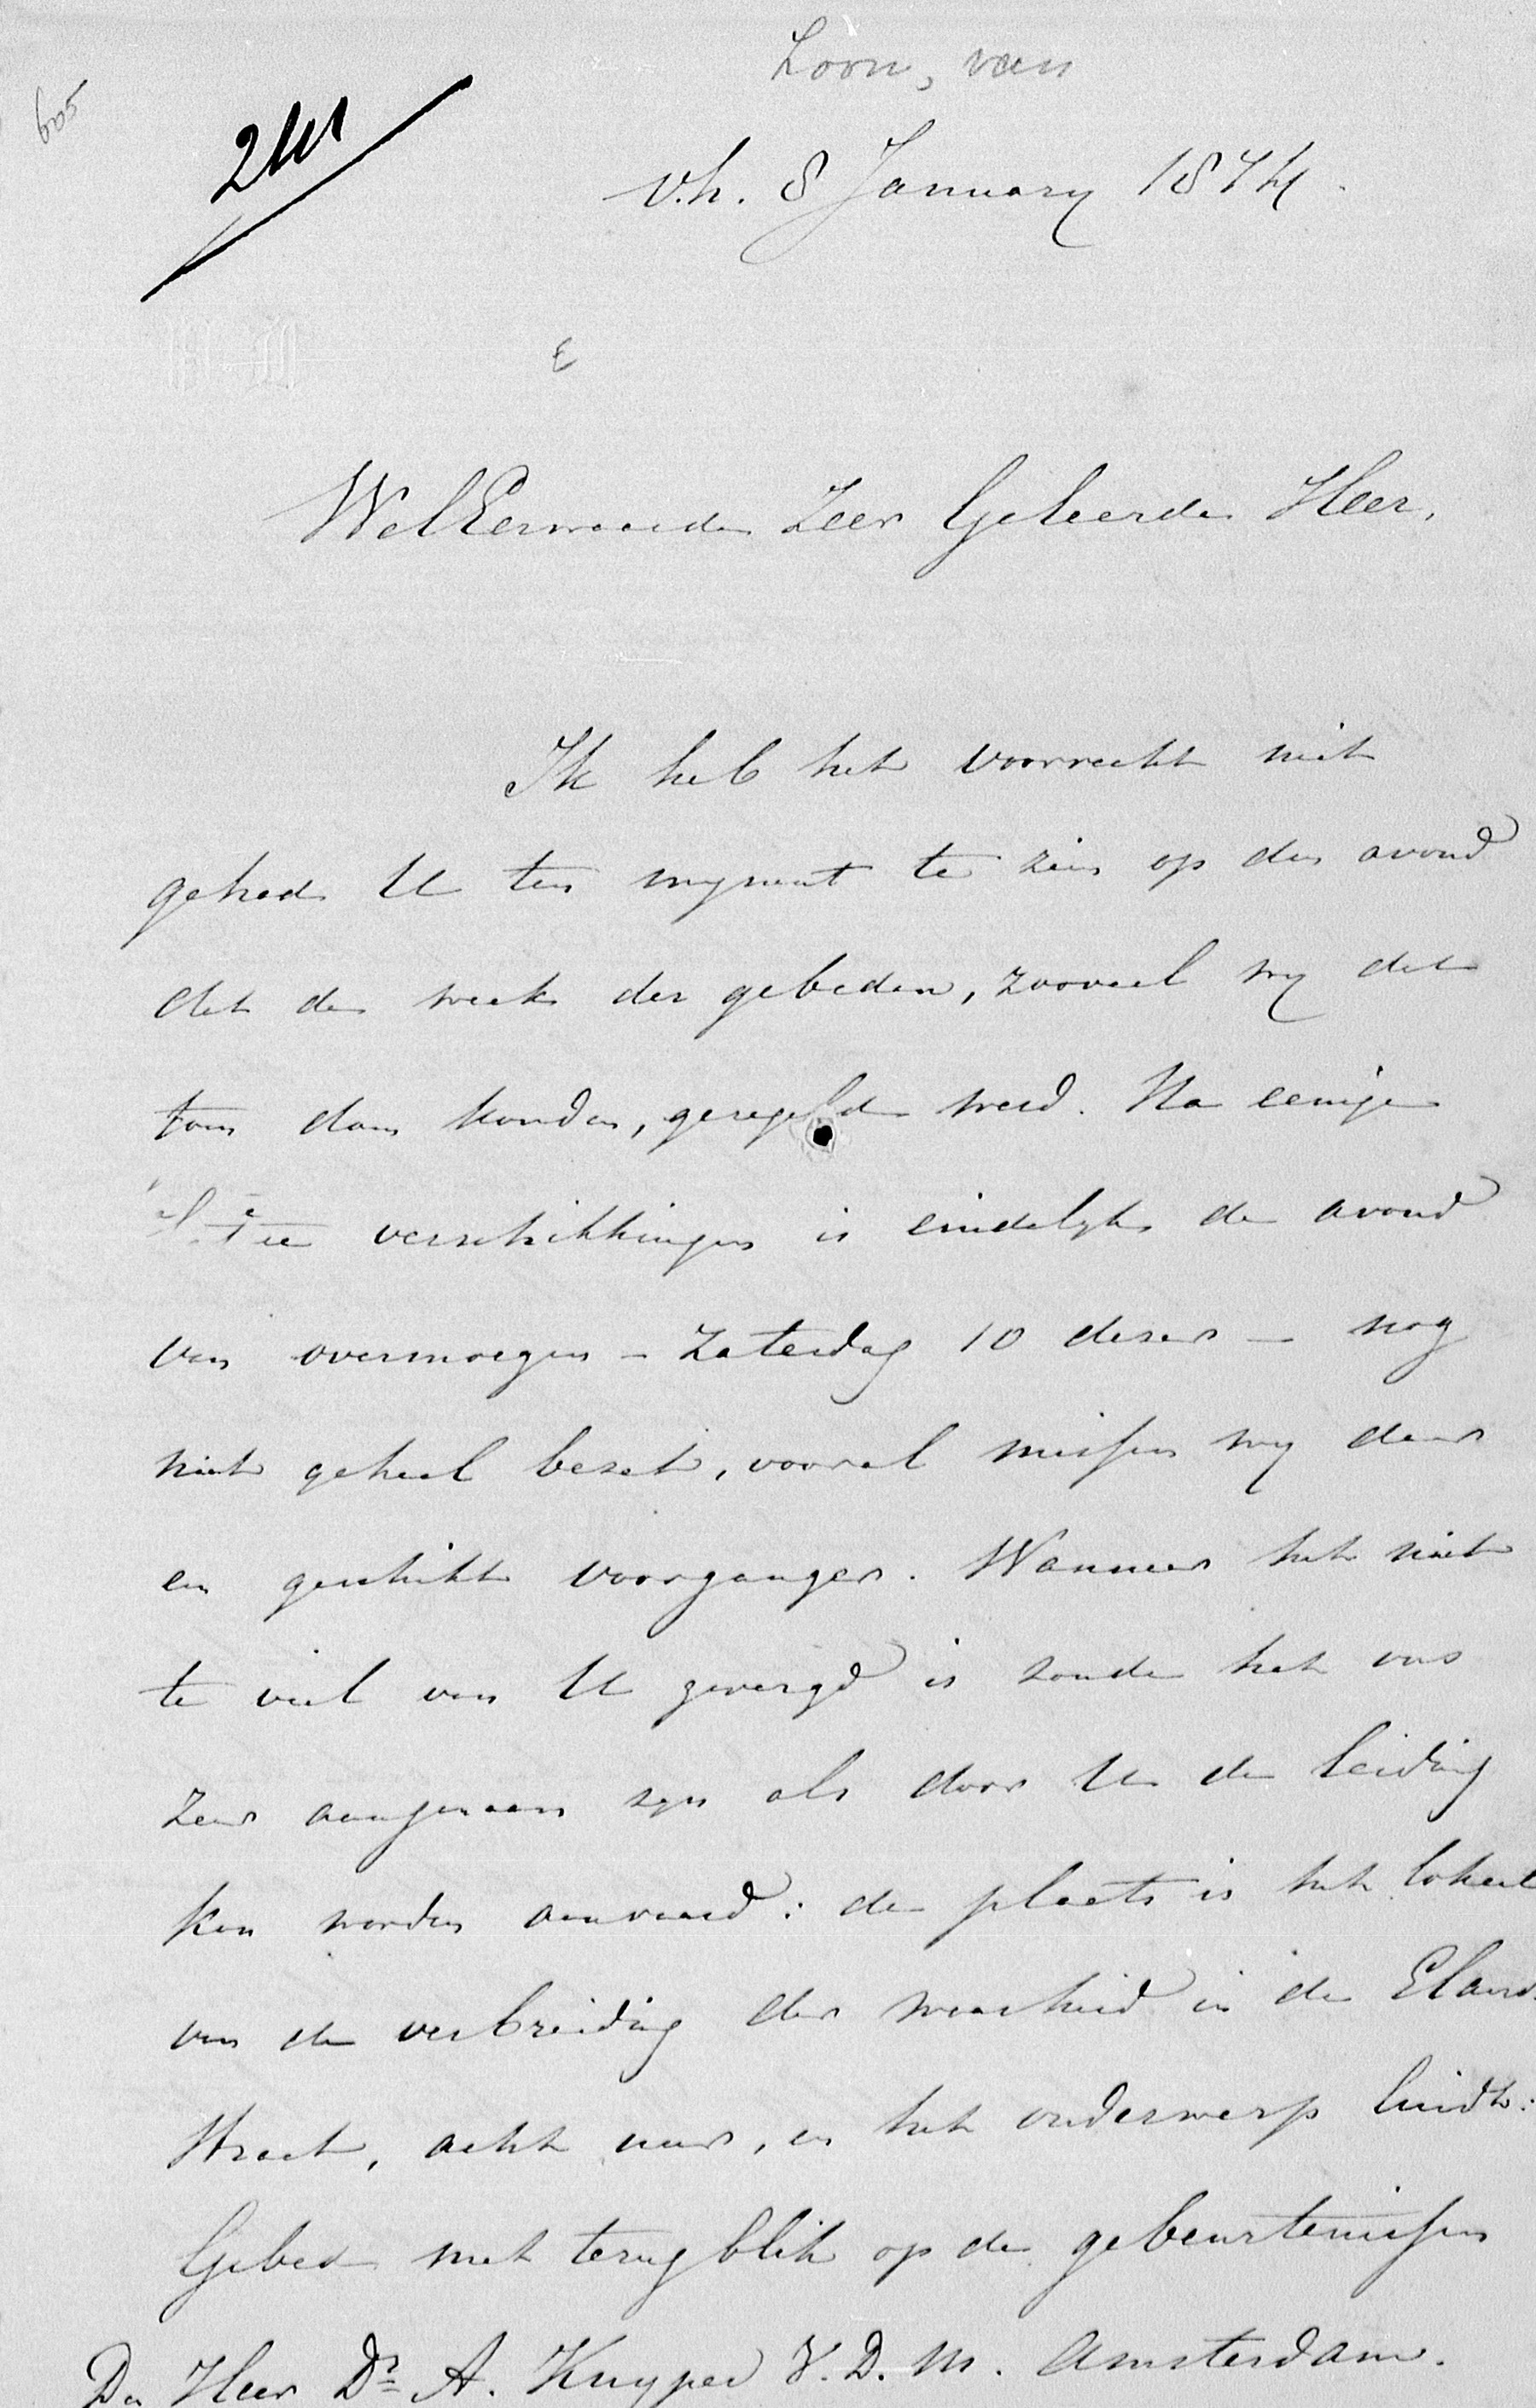 Loon, van
605
v.h. 8 January 1874.
WelEerwaarde Zeer Geleerde Heer,
Ik heb het voorrecht niet
gehad U ten mynent te zien op den avond
dat de week der gebeden, zooveel wy dat
toen doen konden, geregeld werd. Na eenige
verschikkingen is eindelyk de avond
van overmorgen – Zaterdag 10 dezer – nog
niet geheel bezet, vooral missen wy daar
en geschikt voorganger. Wanneer het niet
te veel van U gevergd is zoude het ons
zeer aangenaam zyn als door U de leiding
kon worden aanvaard: de plaats is het lokaal
van de verbreiding der waarheid in de Elands
straat, acht uur, en het onderwerp luidt:
Gebed met terugblik op de gebeurtenissen
De Heer Dr A. Kuyper V.D.M. Amsterdam.